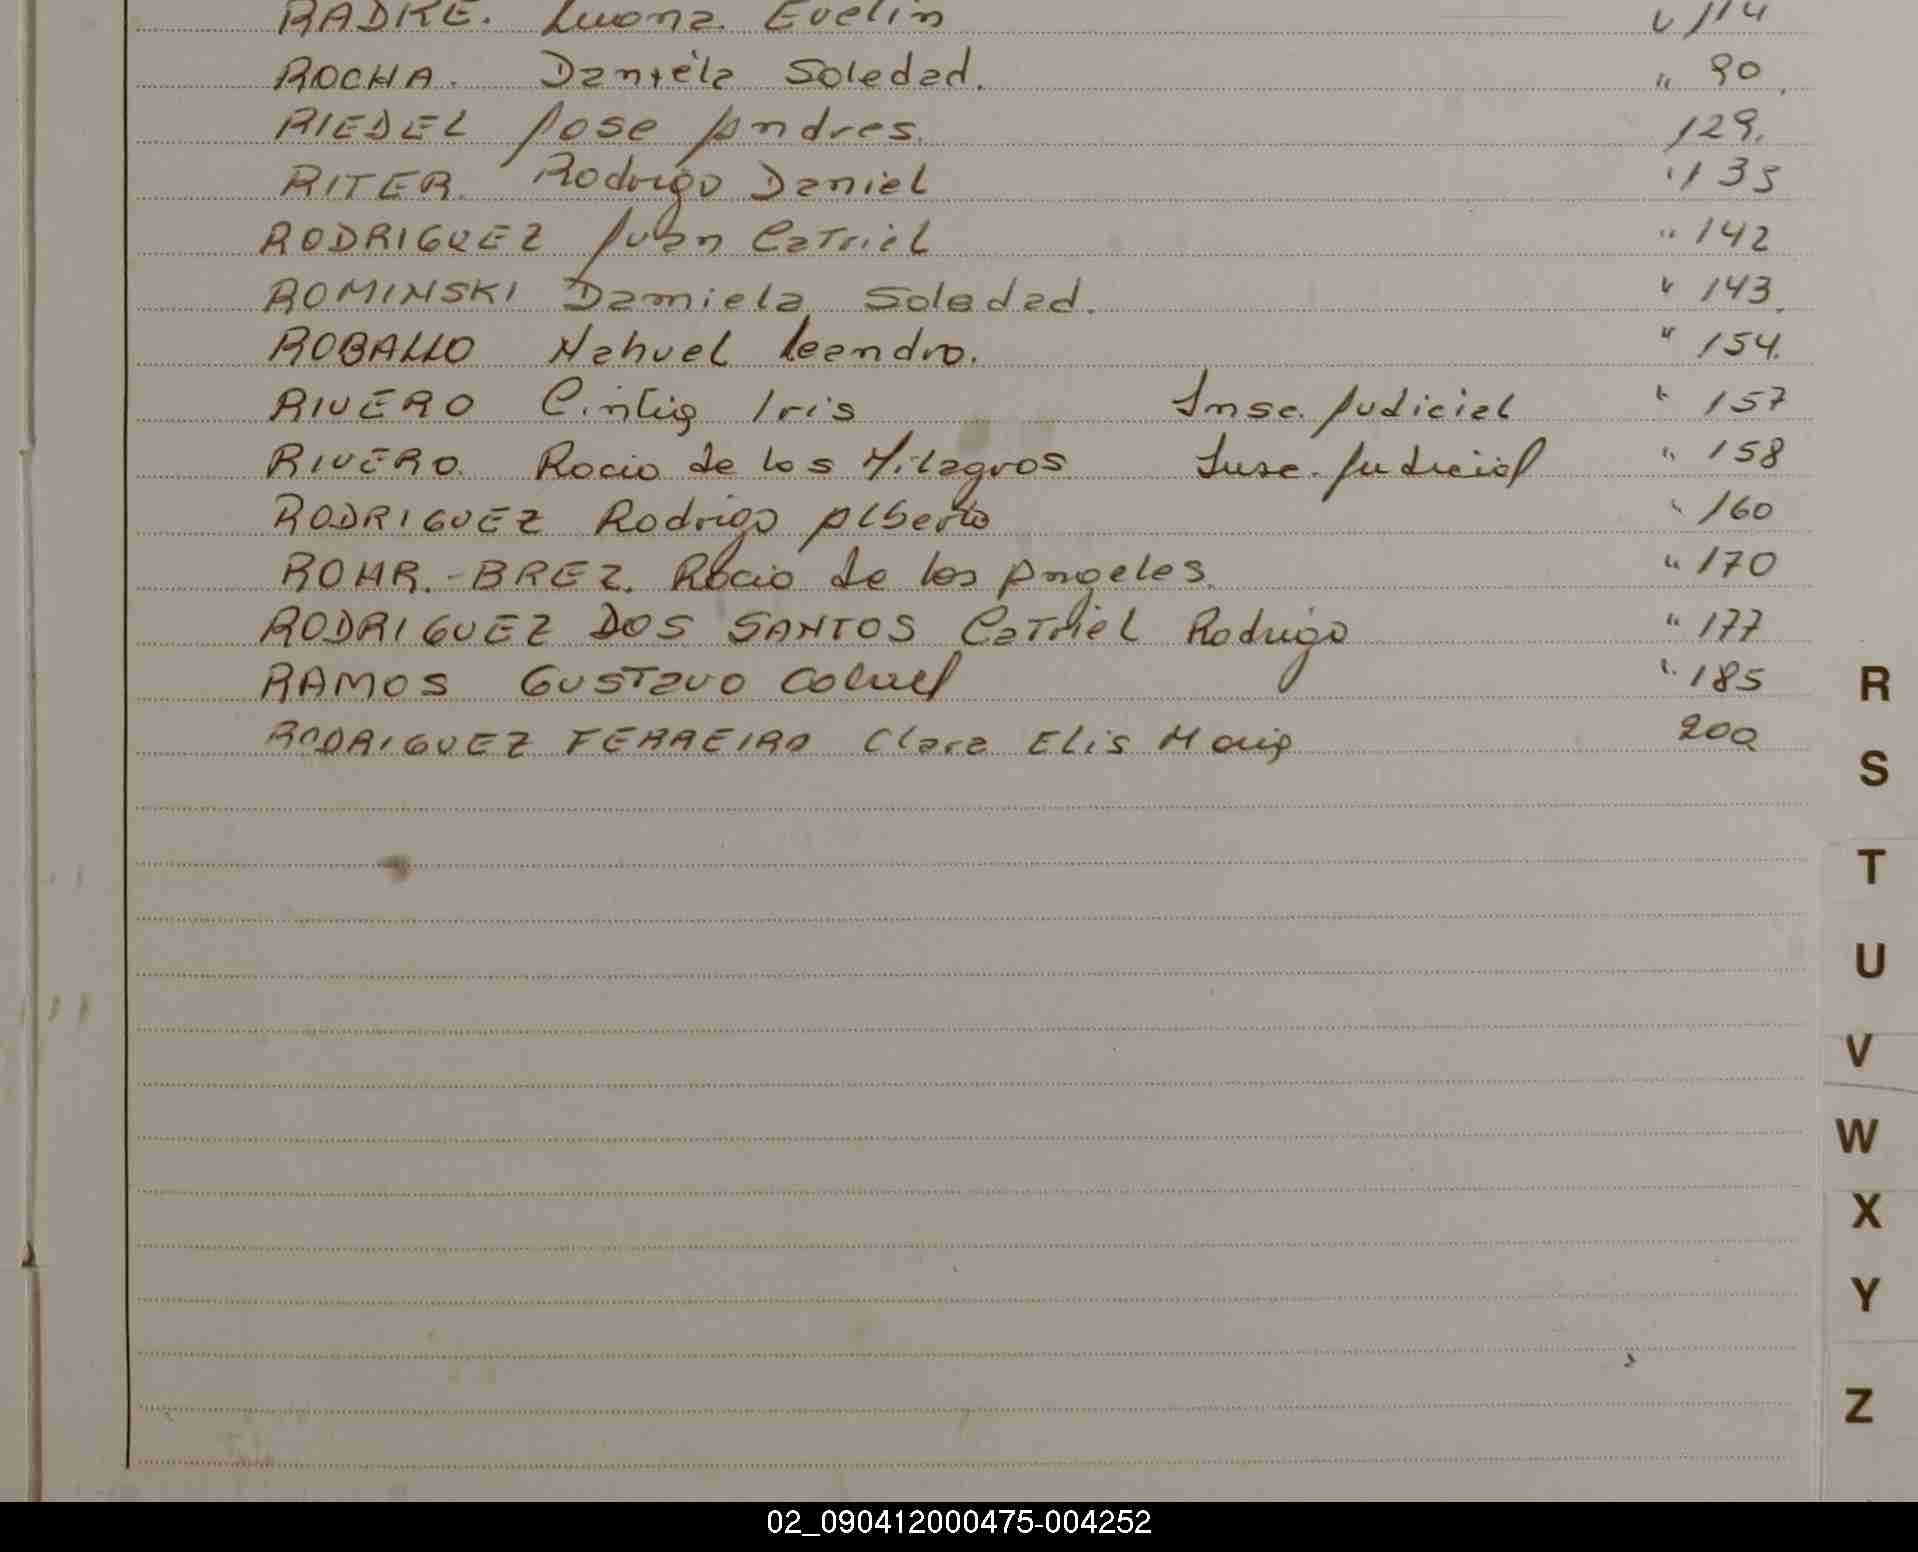 RADKE. Luona Evelin " 114
ROCHA. Daniela Soledad. " 90
RIEDEL Jose Andres. 129.
RITER. Rodrigo Daniel " 135
RODRIGUEZ Juan Catriel " 142
ROMINSKI Damiela Soledad. " 143
ROBALLO Nahuel Leandro. " 154.
RIVERO Cintia Iris Insc. Judicial " 157
RIVERO. Rocio de los Milagros Insc. Judicial " 158
RODRIGUEZ Rodrigo Alberto " 160
ROHR.-BREZ. Rocio de los Angeles. " 170
RODRIGUEZ DOS SANTOS Catriel Rodrigo " 177
RAMOS GUSTAVO " 185
RODRIGUEZ FERREIRO Clara Elis Maria 200
R
S
T
U
V
W
X
Y
Z
02_090412000475-004252